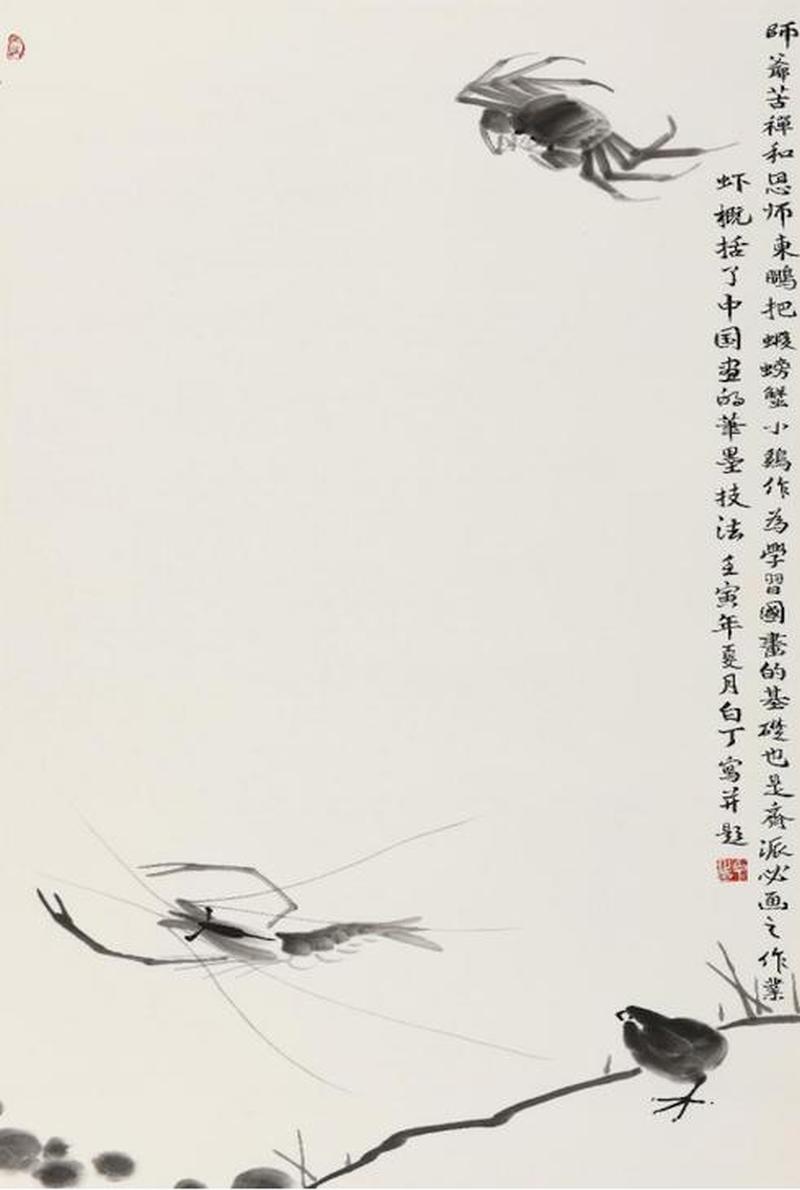 師爺苦禪和恩师東鵬把蝦螃蟹小鷄作為學習國畫的基礎也是齊派必画之作業
虾概括了中国画的筆墨技法 壬寅年夏月白丁寫并題